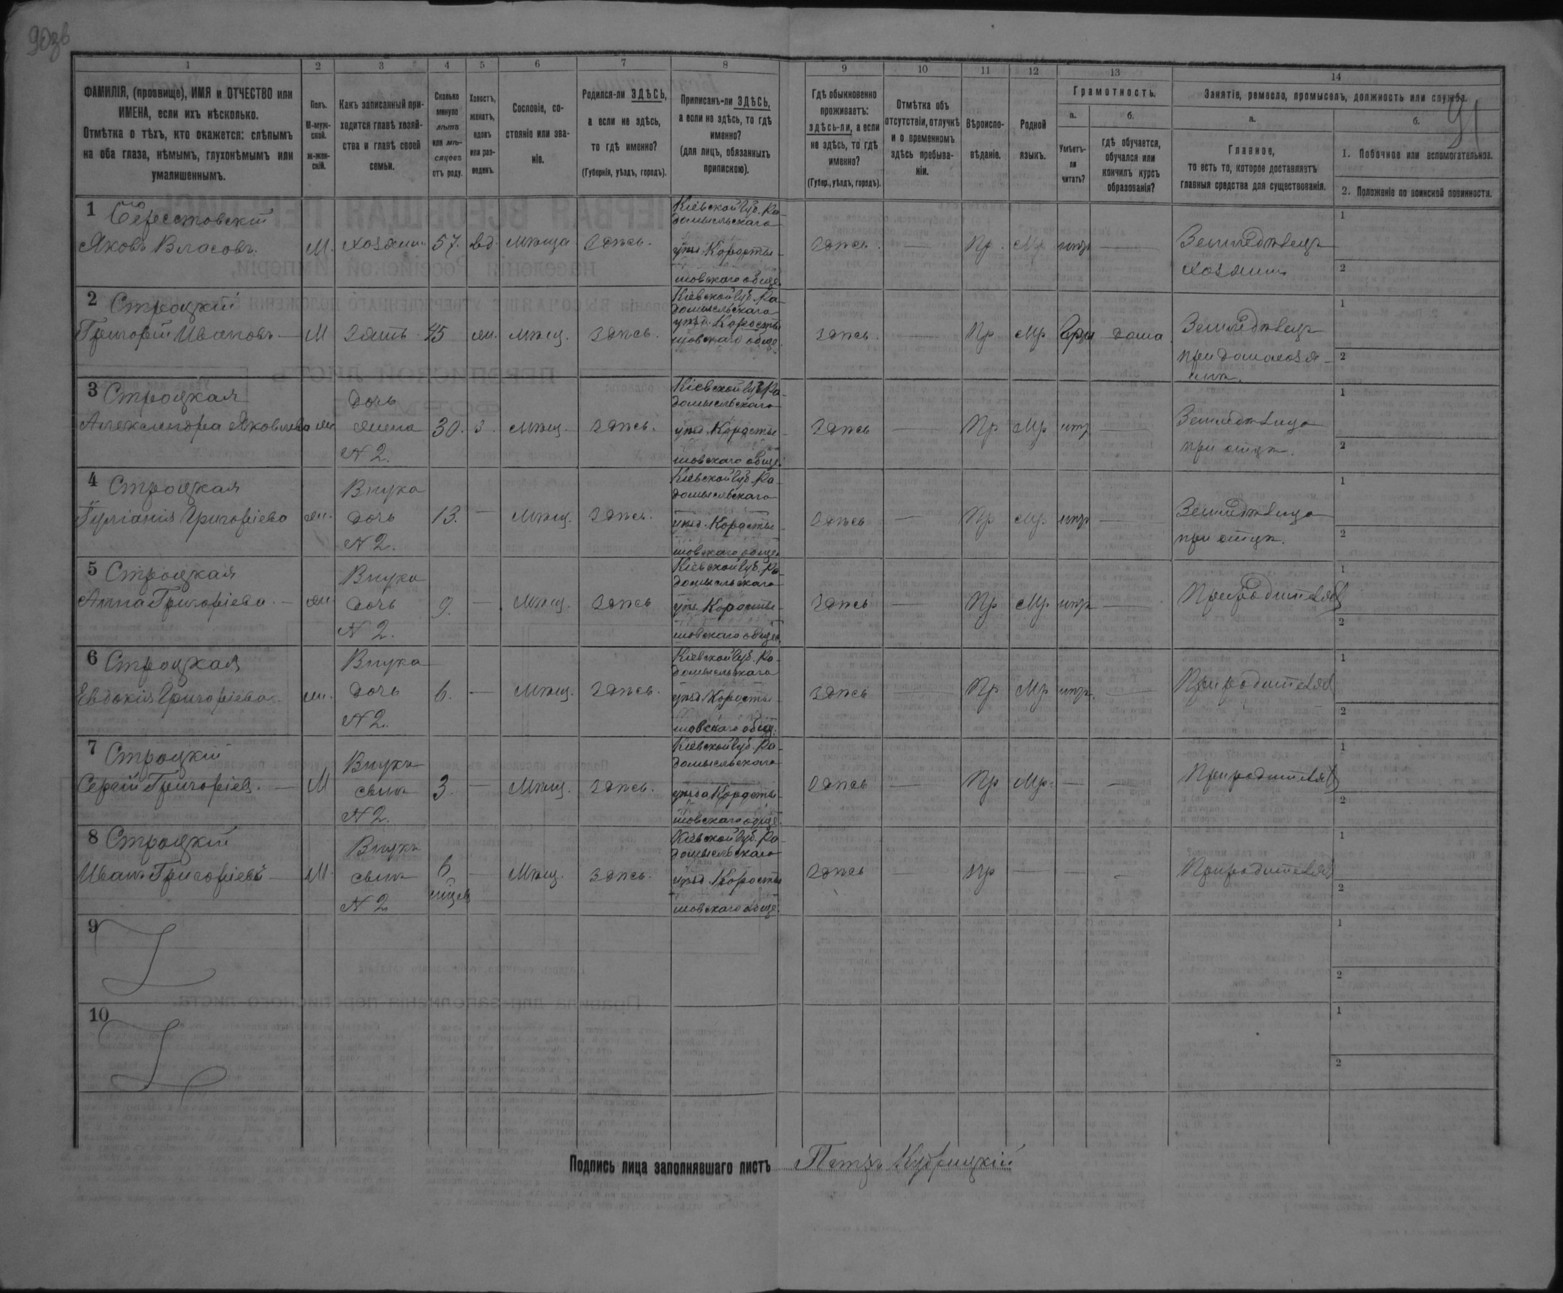 90зв
91
1 2 3 4 5 6 7 8 9 10 11 12 13 14
ФАМИЛІЯ, (прозвище), ИМЯ и ОТЧЕСТВО или
ИМЕНА, если ихъ нѣсколько.
Отмѣтка о тѣхъ, кто окажется: слѣпымъ
на оба глаза, нѣмымъ, глухонѣмымъ или
умалишеннымъ.
Полъ.
М-муж-
ской.
ж-жен-
скій.
Какъ записанный при-
ходится главѣ хозяй-
ства и главѣ своей
семьи.
Сколько
минуло
лѣтъ
или мѣ-
сяцевъ
отъ роду.
Холостъ,
женатъ,
вдовъ
или раз-
веденъ.
Сословіе, со-
стояніе или зва-
ніе.
Родился-ли ЗДѢСЬ,
а если не здѣсь,
то гдѣ именно?
(Губернія, уѣздъ, городъ).
Приписанъ-ли ЗДѢСЬ,
а если не здѣсь, то гдѣ
именно?
(для лицъ, обязанныхъ
припискою).
Гдѣ обыкновенно
проживаетъ:
здѣсь-ли, а если
не здѣсь, то гдѣ
именно?
(Губер., уѣздъ, городъ).
Отмѣтка объ
отсутствіи, отлучкѣ
и о временномъ
здѣсь пребыва-
ніи.
Вѣроиспо-
вѣданіе.
Родной
языкъ.
Грамотность.
а.
Умѣетъ-
ли
читать?
б.
гдѣ обучается,
обучался или
кончилъ курсъ
образованія?
Занятіе, ремесло, промыселъ, должность или служба.
а.
Главное,
то есть то, которое доставляетъ
главныя средства для существованія.
б.
1. Побочное или вспомогательное.
2. Положеніе по воинской повинности.
1
Яковъ Власовъ М. хозяинъ 57. вд. мѣща здѣсь.
Кіевской губ. Ра-
домысльскаго
уѣзд. Коросты-
шовскаго общ.
здѣсь. — Пр. Мр. нѣтъ —
Земледѣлецъ
хозяинъ
1
2
2 Строцкій
Григорій Ивановъ — М зять 45 жн. мѣщ. здѣсь.
Кіевской губ. Ра-
домысльскаго
уѣзд. Коросты-
шовскаго общ.
здѣсь. — Пр. Мр. дома
Земледѣлецъ
при домохозя-
инѣ.
1
2
3 Строцкая
Александра Яковлева жн
дочь
жена
N 2.
30. з. мѣщ. здѣсь.
Кіевской губ. Ра-
домысльскаго
уѣзд. Коросты-
шовскаго общ.
здѣсь — Пр. Мр. нѣтъ —
Земледѣлица
при отцѣ.
1
2
4 Строцкая
Іуліанія Григоріева жн.
Внука
дочь
N 2.
13. — мѣщ. здѣсь.
Кіевской губ. Ра-
домысльскаго
уѣзд. Коросты-
шовскаго общ.
здѣсь — Пр Мр. нѣтъ —
Земледѣлица
при отцѣ.
1
2
5 Строцкая
Анна Григоріева. — жн
Внука
дочь
N 2.
9. — мѣщ. здѣсь
Кіевской губ. Ра-
домысльскаго
уѣзд. Коросты-
шовскаго общ.
здѣсь — Пр Мр. нѣтъ —
При родителяхъ
1
2
6 Строцкая
Евдокія Григоріева жн.
Внука
дочь
N 2.
6. — мѣщ. здѣсь.
Кіевской губ. Ра-
домысльскаго
уѣзд. Коросты-
шовскаго общ.
здѣсь — Пр Мр нѣтъ. —
При родителяхъ
1
2
7 Строцкій
Сергій Григоріев. — М
Внукъ
сынъ
N 2.
3. — мѣщ. здѣсь.
Кіевской губ. Ра-
домысльскаго
уѣзда Коросты-
шовскаго общ.
здѣсь — Пр Мр. — —
При родителяхъ
1
2
8 Строцкій
Иванъ Григоріевъ — М.
Внукъ
сынъ
N 2
6
мѣсц.
— мѣщ. здѣсь.
Кіевской губ. Ра-
домысльскаго
уѣзд. Коросты-
шовскаго общ.
здѣсь — пр — — —
При родителяхъ
1
2
9
1
2
10
1
2
Подпись лица заполнявшаго листъ Петръ